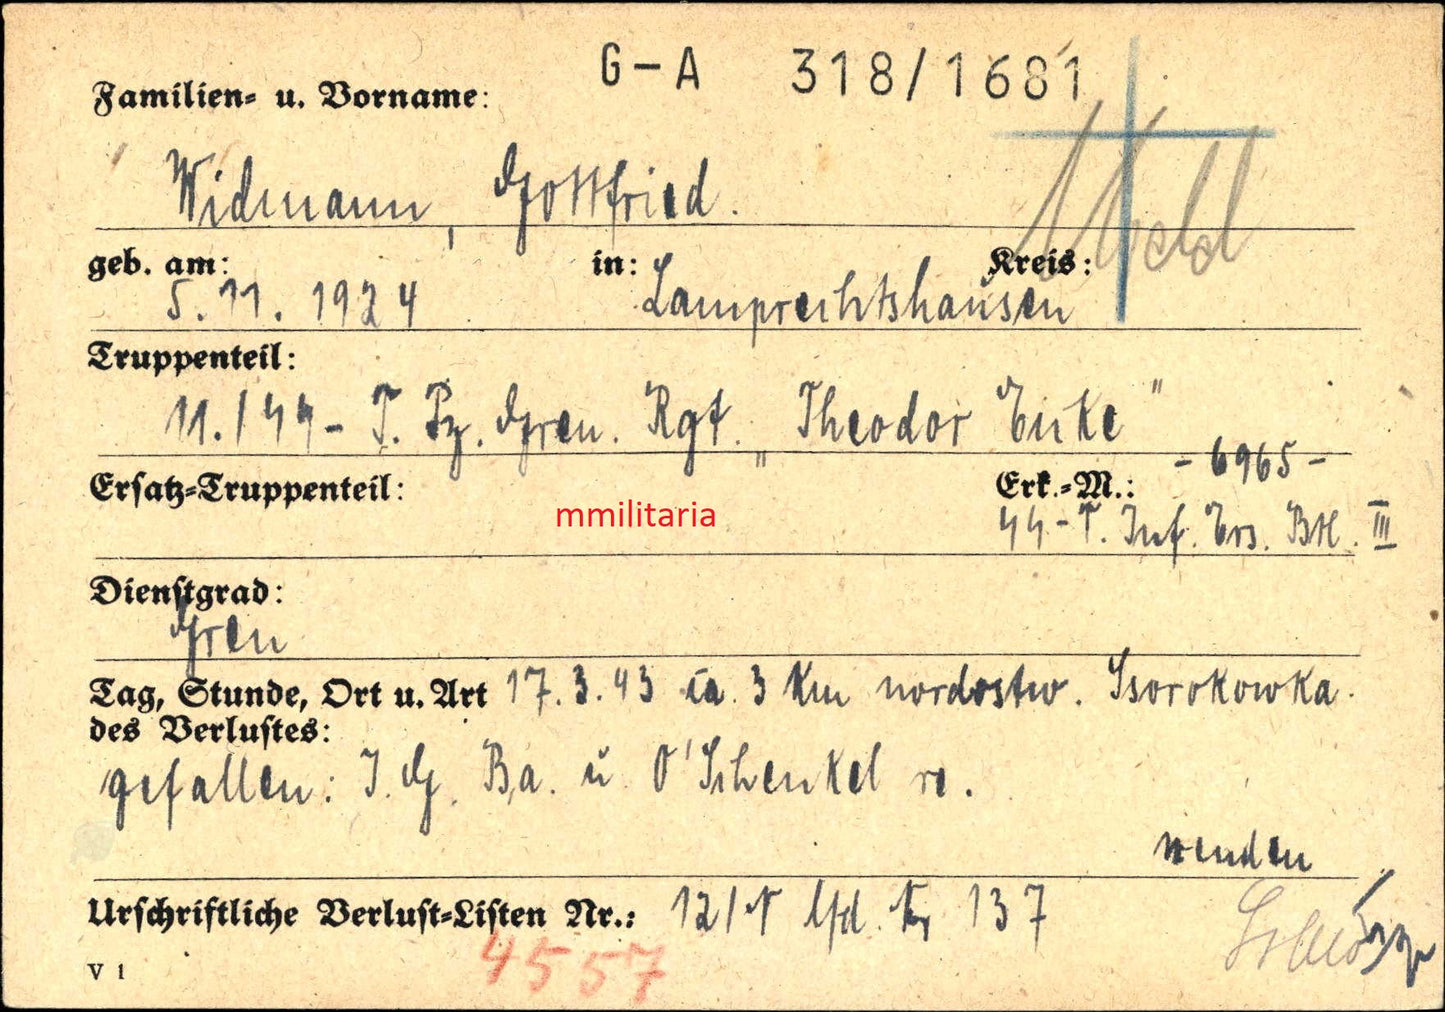 G-A 318/1681
Familien- u. Vorname:
Widmann, Gottfried.
geb. am: in: Kreis:
5.11.1924 Lamprechtshausen
Truppenteil:
11./SS-T. Pz. Gren. Rgt. „Theodor Eicke"
Ersatz-Truppenteil: Erk.-M.: -6965-
mmilitaria
SS-T. Inf. Ers. Btl. III
Dienstgrad:
Gren
Tag, Stunde, Ort u. Art 17.3.43 ca. 3 Km nordostw. Ssorokowka.
des Verlustes:
gefallen: I.G. Ba. u O'Schenkel re.
wenden
Urschriftliche Verlust-Listen Nr.: 12/ lfd. 137
V 1 4557